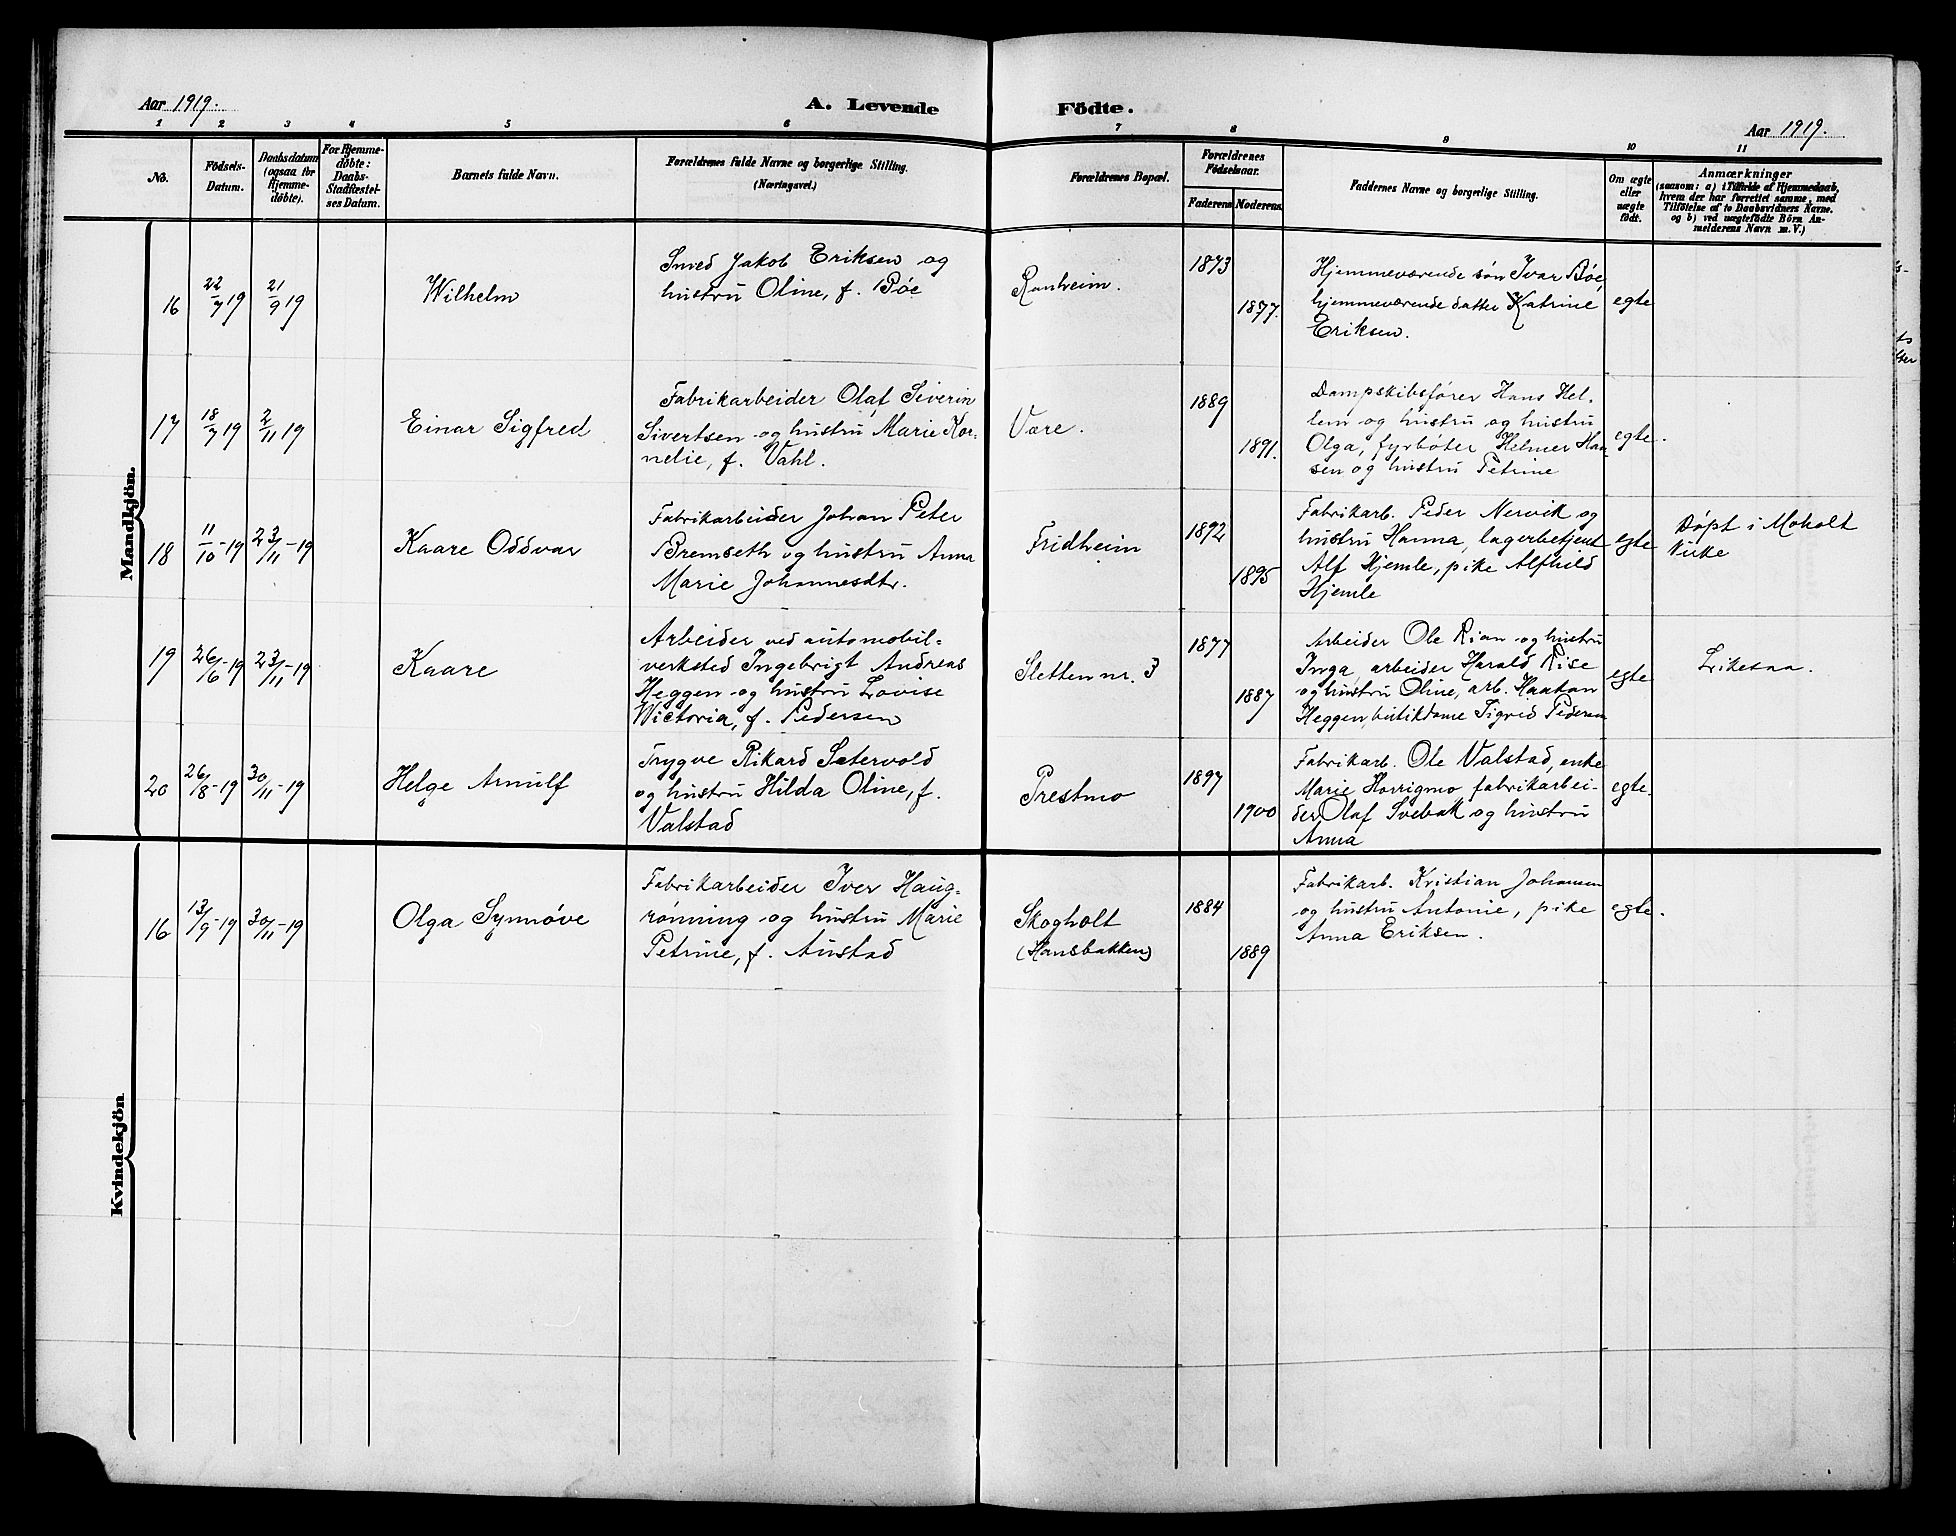 Aar 1919.
A. Levende Födte.
Aar 1919.
1 2 3 4 5 6 7 8 9 10 11
No.
Födsels-
Datum.
Daabsdatum
(ogsaa for
Hjemme-
døbte).
For Hjemme-
døbte:
Daabs-
Stadfæstel-
ses Datum.
Barnets fulde Navn.
Forældrenes fulde Navne og borgerlige Stilling.
(Næringsvei.)
Forældrenes Bopæl.
Forældrenes
Födselsaar.
Faderens Moderens.
Faddernes Navne og borgerlige Stilling.
Om ægte
eller
uægte
født.
Anmærkninger
(saasom: a) i Tilfælde af Hjemmedaab,
hvem der har forrettet samme, med
Tilföielse af to Daabsvidners Navne.
og b) ved uægtefödte Börn An-
melderens Navn m. V.)
Mandkjön.
16
22/7 19
21/9 19
Wilhelm
Smed Jakob Eriksen og
hustru Oline, f. Bøe
Ranheim.
1873
1877.
Hjemmeværende søn Ivar Bøe,
hjemmeværende datter Katrine
Eriksen.
egte
17
18/7 19
2/11 19
Einar Sigfred
Fabrikarbeider Olaf Severin
Sivertsen og hustru Marie Kor-
nelie, f. Vahl.
Være.
1889
1891.
Dampskibsfører Hans Hel-
lem og hustru og hustru
Olga, fyrbøter Helmer Han-
sen og hustru Petrine
egte.
18
11/10-19
23/11-19
Kaare Oddvar
Fabrikarbeider Johan Peter
Bremseth og hustru Anna
Marie Johannesdtr.
Fridheim
1892
1895
Fabrikarb. Peder Nervik og
hustru Hanna, lagerbetjent
Alf Hjemle, pike Alfhild
Hjemle
egte
Døpt i Moholt
kirke
19
26/6-19
23/11-19
Kaare
Arbeider ved automobil-
verksted Ingebrigt Andreas
Heggen og hustru Lovise
Wictoria, f. Pedersen
Sletten nr. 3
1877
1887
Arbeider Ole Rian og hustru
Inga, arbeider Harald Rise
og hustru Oline, arb. Haakon
Heggen, butikdame Sigrid Pedersen
egte
Likesaa.
20
26/8-19
30/11-19
Helge Arnulf
Trygve Rikard Sætervold
og hustru Hilda Oline, f.
Valstad
Prestmo
1897
1900
Fabrikarb. Ole Valstad, enke
Marie Horrigmo fabrikarbei-
der Olaf Svebak og hustru
Anna
egte.
Kvindekjön.
16
13/9-19
30/11-19
Olga Synnøve
Fabrikarbeider Iver Haug-
rønning og hustru Marie
Petrine, f. Austad
Skogholt
(Hansbakken)
1884
1889
Fabrikarb. Kristian Johansen
og hustru Antonie, pike
Anna Eriksen.
egte.